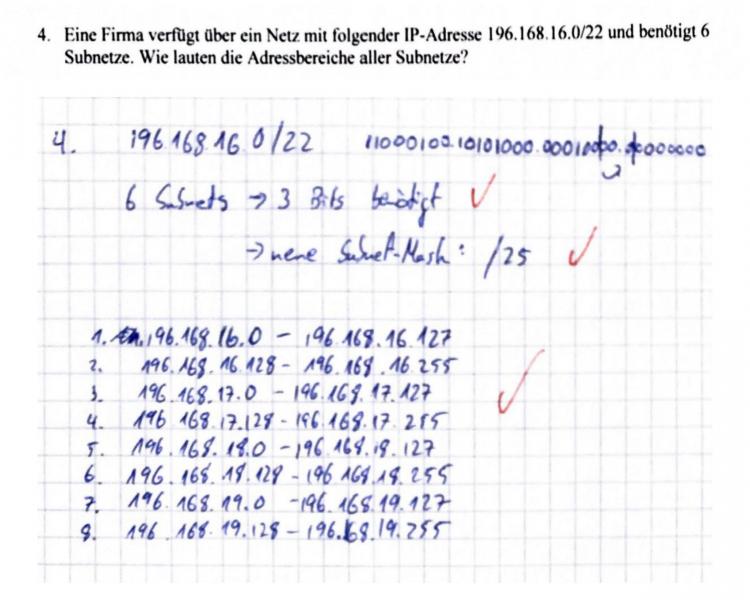 4. Eine Firma verfügt über ein Netz mit folgender IP-Adresse 196.168.16.0/22 und benötigt 6
Subnetze. Wie lauten die Adressbereiche aller Subnetze?
4. 196.168.16.0/22 11000100.10101000.00010000.00000000
6 Subnets → 3 Bits benötigt ✓
→ neue Subnet-Mask: /25 ✓
1. 196.168.16.0 - 196.168.16.127
2. 196.168.16.128 - 196.168.16.255
3. 196.168.17.0 - 196.168.17.127
4. 196.168.17.128 - 196.168.17.255
5. 196.168.18.0 - 196.168.18.127
6. 196.168.18.128 - 196.168.18.255
7. 196.168.19.0 - 196.168.19.127
8. 196.168.19.128 - 196.168.19.255